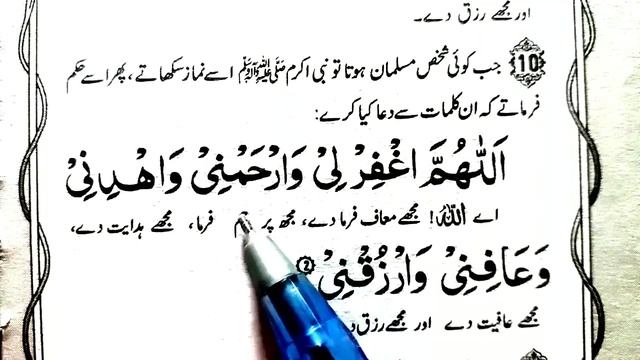 اور مجھے رزق دے۔
10 جب کوئی شخص مسلمان ہوتا تو نبی اکرم ﷺ اسے نماز سکھاتے ، پھر اسے حکم
فرماتے کہ ان کلمات سے دعا کیا کرے:
اَللّٰهُمَّ اغْفِرْ لِيْ وَارْحَمْنِيْ وَاهْدِنِيْ
اے اللہ! مجھے معاف فرما دے، مجھ پر فرما، مجھے ہدایت دے،
وَعَافِنِيْ وَارْزُقْنِيْ 2
مجھے عافیت دے اور مجھے رزق